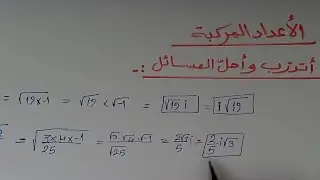 الأعداد المركبة
أتدرّب وأحلّ المسائل :.
= √19×-1 = √19 × √-1 = √19 i = i√19
= √(3×4×-1 / 25) = √3 √4 √-1 / √25 = 2√3 i / 5 = 2/5 i√3